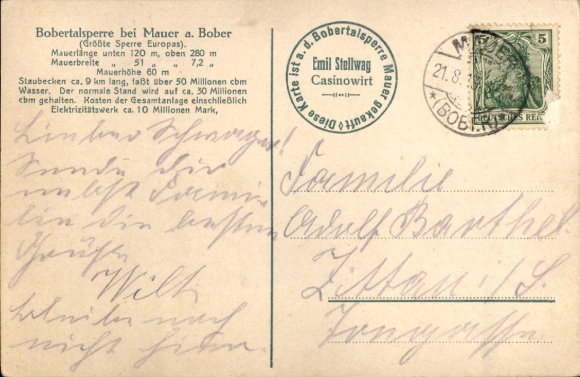 Bobertalsperre bei Mauer a. Bober
(Größte Sperre Europas).
Mauerlänge unten 120 m, oben 280 m
Mauerbreite „ 51 „ „ 7,2 „
Mauerhöhe 60 m
Staubecken ca. 9 km lang, faßt über 50 Millionen cbm
Wasser. Der normale Stand wird auf ca. 30 Millionen
cbm gehalten. Kosten der Gesamtanlage einschließlich
Elektrizitätswerk ca. 10 Millionen Mark,
Diese Karte ist a. d. Bobertalsperre Mauer gekauft
Emil Stellwag
Casinowirt
5
21.8.
(BOBER)
Lieber Schwager!
Sende dir
nebst Familie
die besten
Grüße
Willi
nicht hier.
Familie
Adolf Barthel
Zittau i/S.